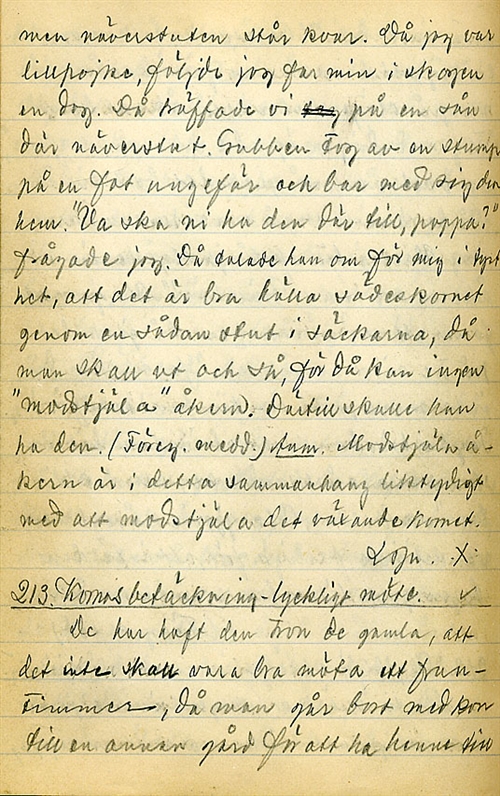 men näverstuten står kvar. Då jag var
lillpojke, följde jag far min i skogen
en dag. Då träffade vi på en sån
där näverstut. Gubben tog av en stump
på en fot ungefär och bar med sig den
hem. "Va ska ni ha den där till, pappa?"
frågade jag. Då talade han om för mig i tyst
het, att det är bra hälla sädeskornet
genom en sådan stut i säckarna, då
man skall ut och så, för då kan ingen
"modstjäla" åkern. Därtill skulle han
ha den. (Föreg. medd.) Anm. Modstjäla å-
kern är i detta sammanhang liktydigt
med att modstjäla det växande kornet.
X
213. Kornas betäckning - lyckligt möte. ✓
De har haft den tron de gamla, att
det inte skall vara bra möta ett frun-
timmer, då man går bort med kon
till en annan gård för att ha henne till